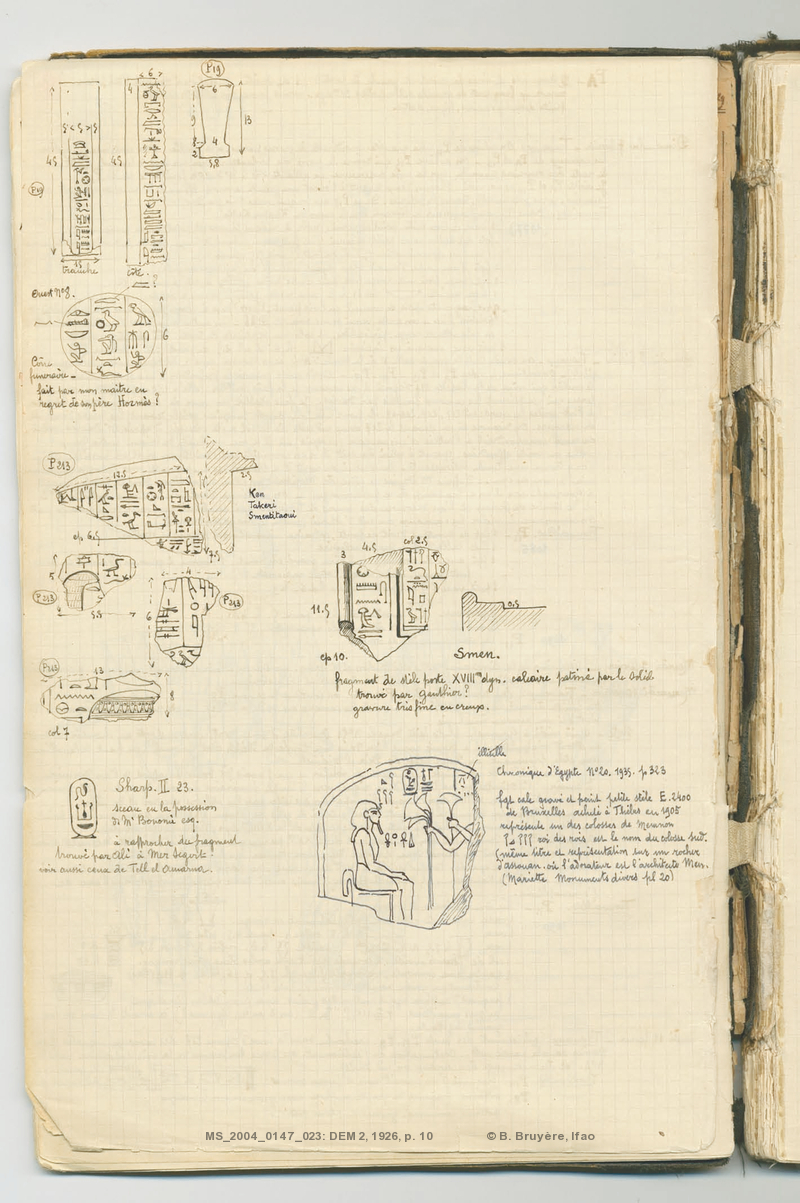 P19
6
6
5 < 5 > 5
4
9
4
13
2
5,8
45
45
P19
15
tranche
côté.
Ouest Nº 8.
6
Cône
funéraire
fait par mon maître en
regret de son père Hormès ?
P213
12.5
2.5
Ken
Takeri
Smentitaoui
ep. 6.5
7.5
5
P213
5.5
4
6
P213
P213
13
8
col 7
3
4.5
col 2.5
11.5
ep 10.
0.5
Smen.
fragment de stèle porte XVIIIme dyn. calcaire patiné par le soleil
trouvé par Gauthier ?
gravure très fine en creux.
Sharp. II 23.
sceau en la possession
di Mr Bononi esq.
à rapprocher du fragment
trouvé par Ali à Mer Segert ?
voir aussi ceux de Tell el Amarna.
Chronique d'Egypte Nº 20. 1935. p 323
fgt calc gravé et peint petite stèle E.2400
de Bruxelles acheté à Thèbes en 1905
représente un des colosses de Memnon
roi des rois est le nom du colosse Sud.
(même titre et représentation sur un rocher
d'Assouan. où l'adorateur est l'architecte Men.
(Mariette Monuments divers pl 20)
MS_2004_0147_023: DEM 2, 1926, p. 10
© B. Bruyère, Ifao